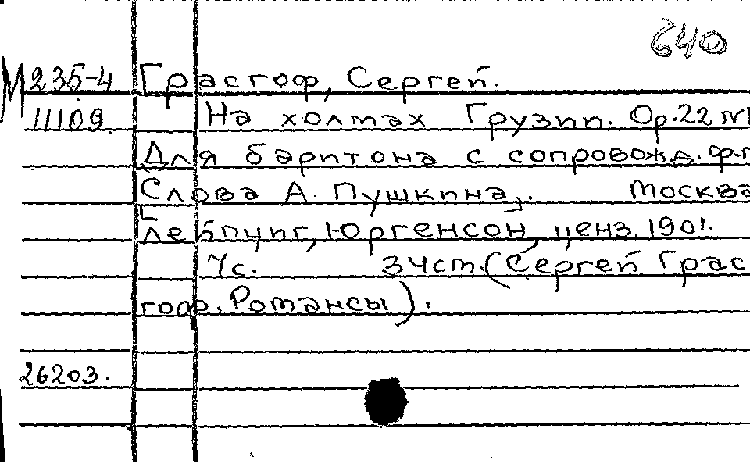 640
М235-4 Грасгоф, Сергей.
11109. На холмах Грузии. Ор.22 №1
Для баритона с сопровожд. ф.п
Слова А. Пушкина,. Москва
Лейпциг, Юргенсон, ценз. 1901.
7с. 34ст. (Сергей Грас
гоф. Романсы).
26203.